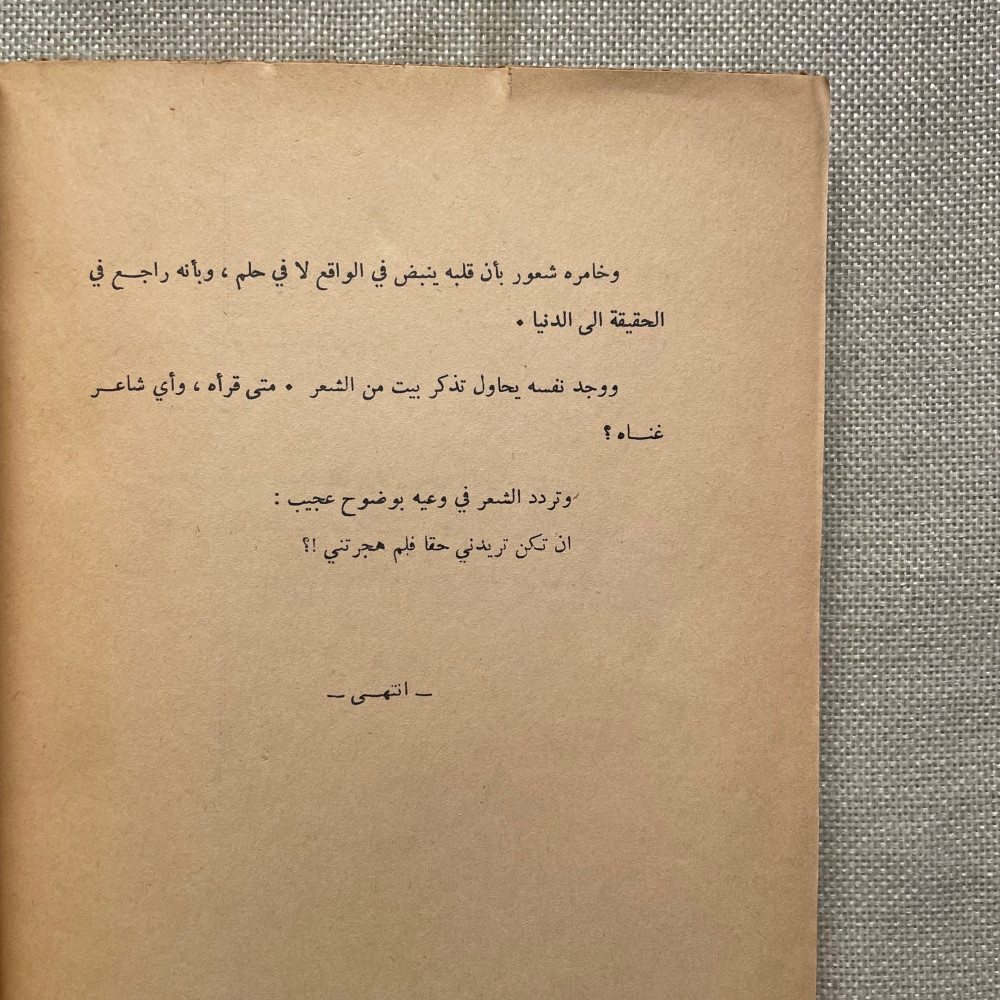 وخامره شعور بأن قلبه ينبض في الواقع لا في حلم ، وبأنه راجـــع في
الحقيقة الى الدنيا •
ووجد نفسه يحاول تذكر بيت من الشعر • متى قرأه ، وأي شاعـــر
غنـــاه ؟
وتردد الشعر في وعيه بوضوح عجيب :
ان تكن تريدني حقا فلم هجرتني !؟
ـ انتهـــى ـ